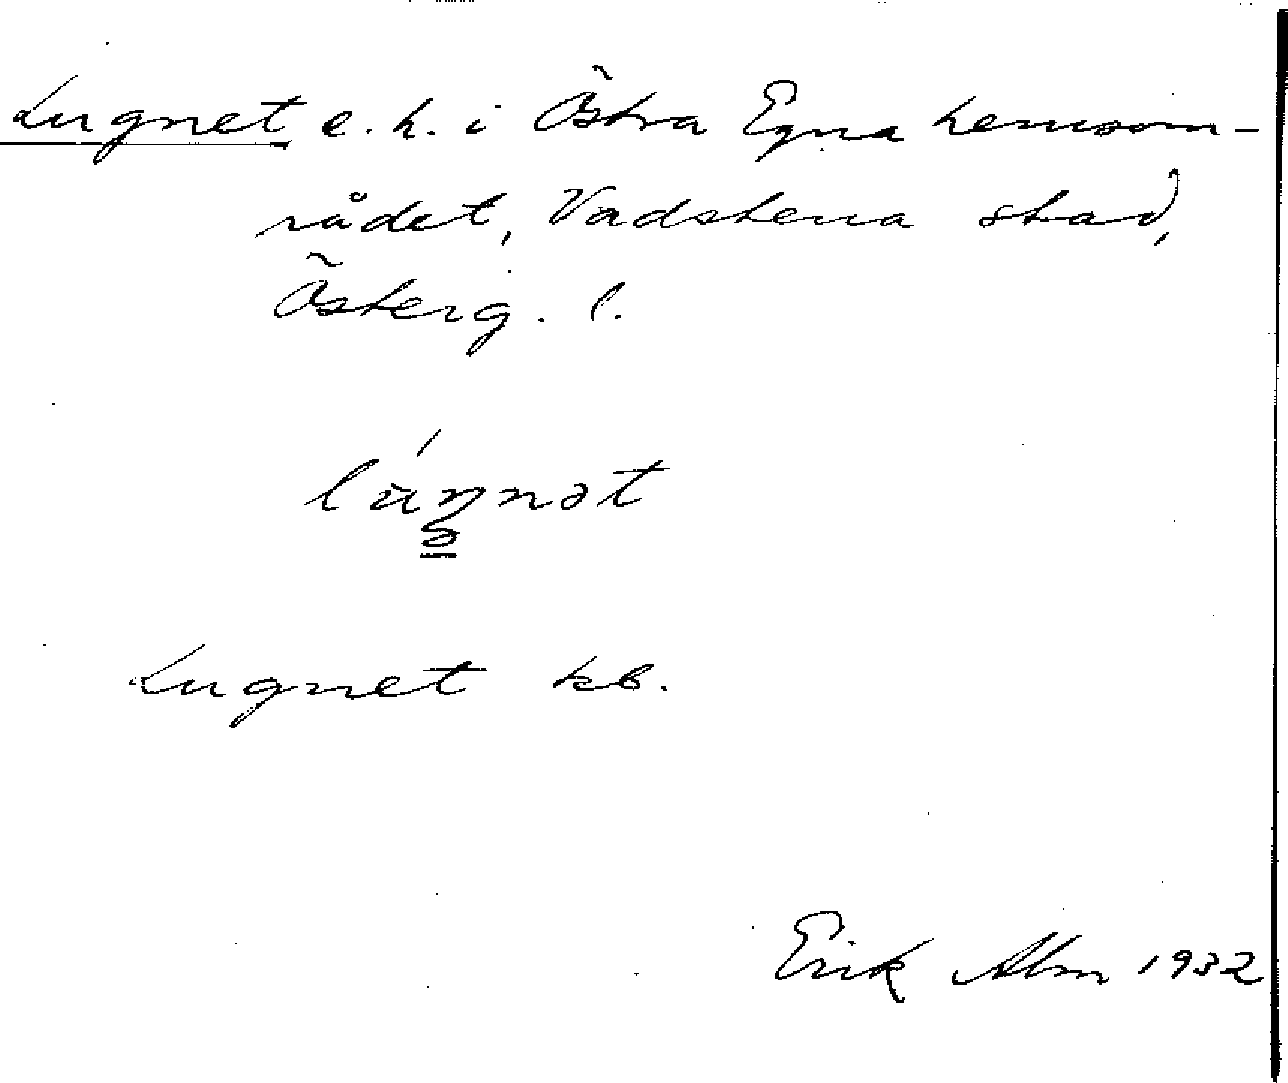 Lugnet e.h. i Östra Egna hemsom-
rådet, Vadstena stad,
Österg. l.
Lugnet kb.
Erik Alm 1932